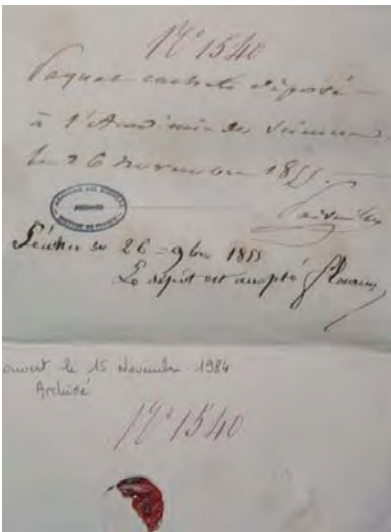 N° 1540
Paquet cacheté déposé
à l'Académie des Sciences
le 26 novembre 1855.
ACADÉMIE DES SCIENCES
ARCHIVES
INSTITUT DE FRANCE
Séance du 26 9bre 1855
Le dépôt est accepté Flourens
ouvert le 15 Novembre 1984
Archivé
N° 1540